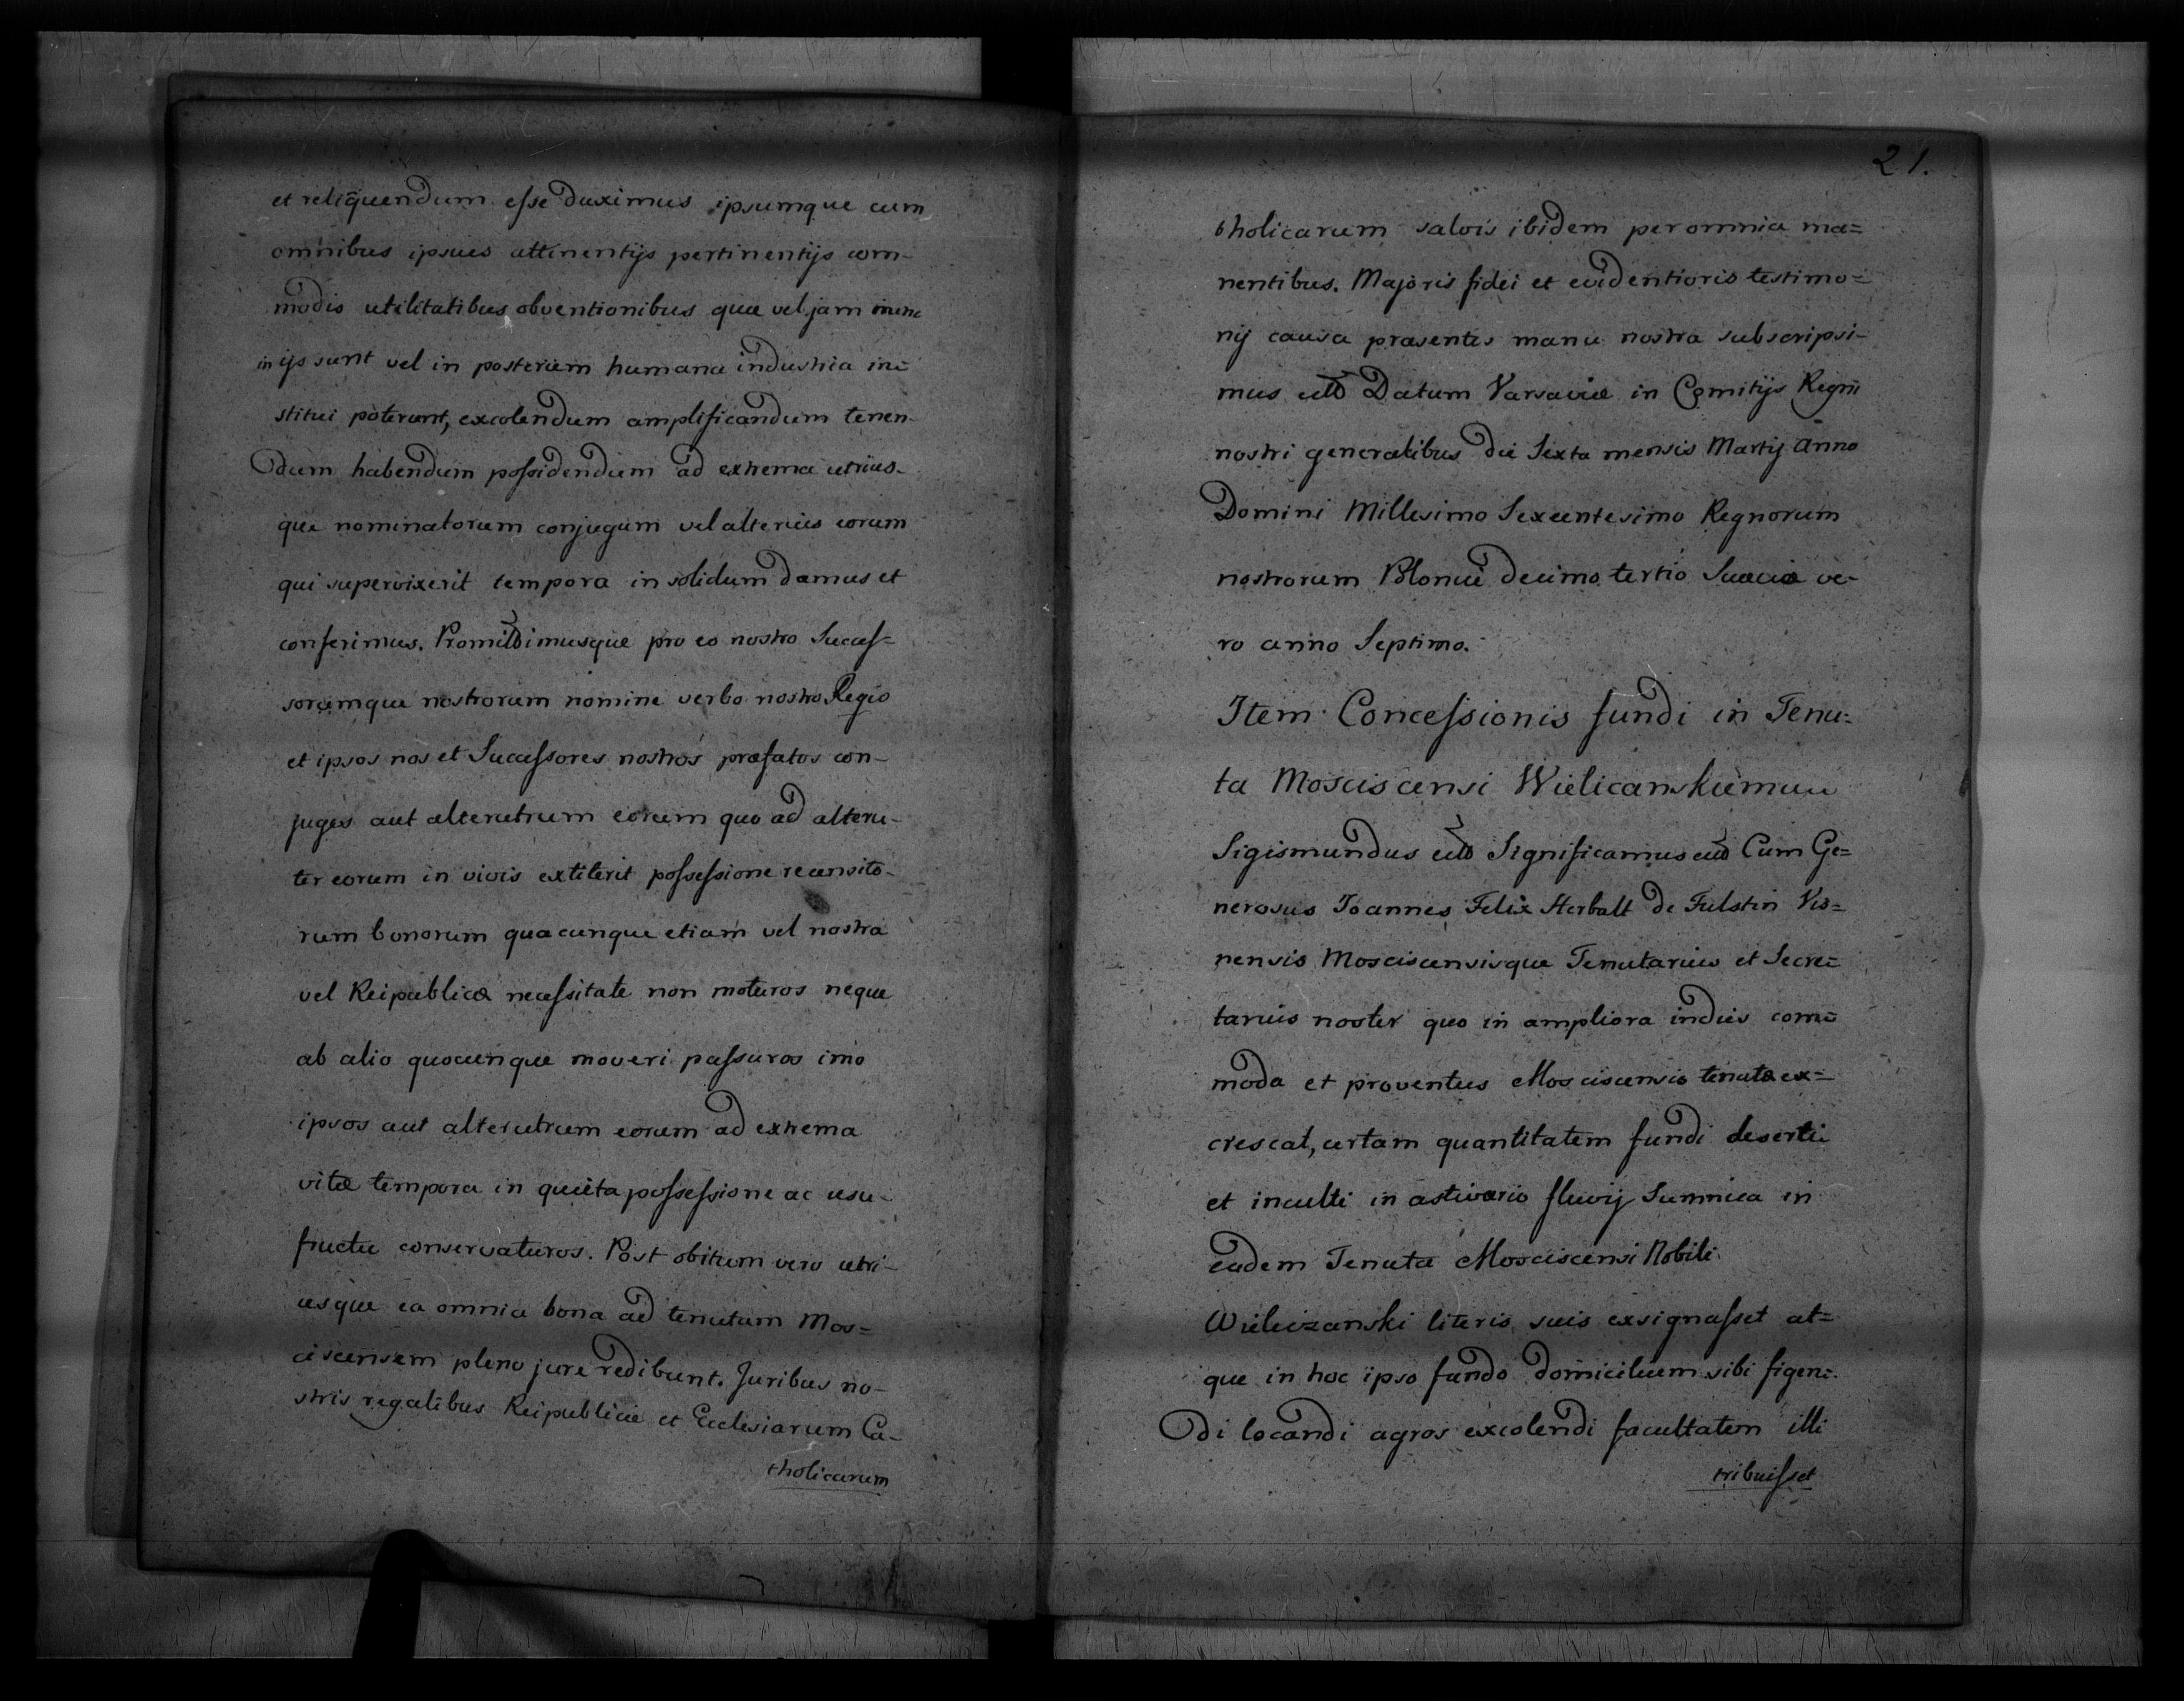 et reliquendum esse duximus ipsumque cum
omnibus ipsius attinentijs pertinentijs com-
modis utilitatibus obventionibus quae vel jam nunc
in ijs sunt vel in posterum humana industria in=
stitui poterunt, excolendum amplificandum tenen-
dum habendum possidendum ad extrema utrius-
que nominatorum conjugum vel alterius eorum
qui supervixerit tempora in solidum damus et
conferimus. Promittimusque pro eo nostro Succes=
sorumque nostrorum nomine verbo nostro Regio
et ipsos nos et Successores nostros præfatos con-
juges aut alterutrum eorum quo ad alteru-
ter eorum in vivis extiterit possessione recensito-
rum bonorum quacunque etiam vel nostra
vel Reipublicæ necessitate non moturos neque
ab alio quocunque moveri passuros imo
ipsos aut alterutrum eorum ad extrema
vitæ tempora in quieta possessione ac usu-
fructu conservaturos. Post obitum vero utri-
usque ea omnia bona ad tenutam Mos=
ciscensem pleno jure redibunt. Juribus no-
stris regalibus Reipublicæ et Ecclesiarum Ca-
tholicarum
21.
tholicarum salvis ibidem per omnia ma=
nentibus. Majoris fidei et evidentioris testimo=
nij causa præsentes manu nostra subscripsi-
mus etto Datum Varsaviæ in Comitijs Regni
nostri generalibus die Sexta mensis Martij Anno
Domini Millesimo Sexcentesimo Regnorum
nostrorum Poloniæ decimo tertio Sueciæ ve-
ro anno Septimo.
Item Concessionis fundi in Tenu=
ta Mosciscensi
Sigismundus etto Significamus etto Cum Ge=
nerosus Joannes Felix Herbult de Fulstin Vis=
nensis Mosciscensisque Tenutarius et Secre=
tarius noster quo in ampliora indies com=
moda et proventus Mosciscensis tenuta ex=
crescat, certam quantitatem fundi deserti
et inculti in æstuario fluvij in
eadem Tenuta Mosciscensi Nobili
Wieliczanski literis suis exsignasset at=
que in hoc ipso fundo domicilium sibi figen=
di locandi agros excolendi facultatem illi
tribuisset